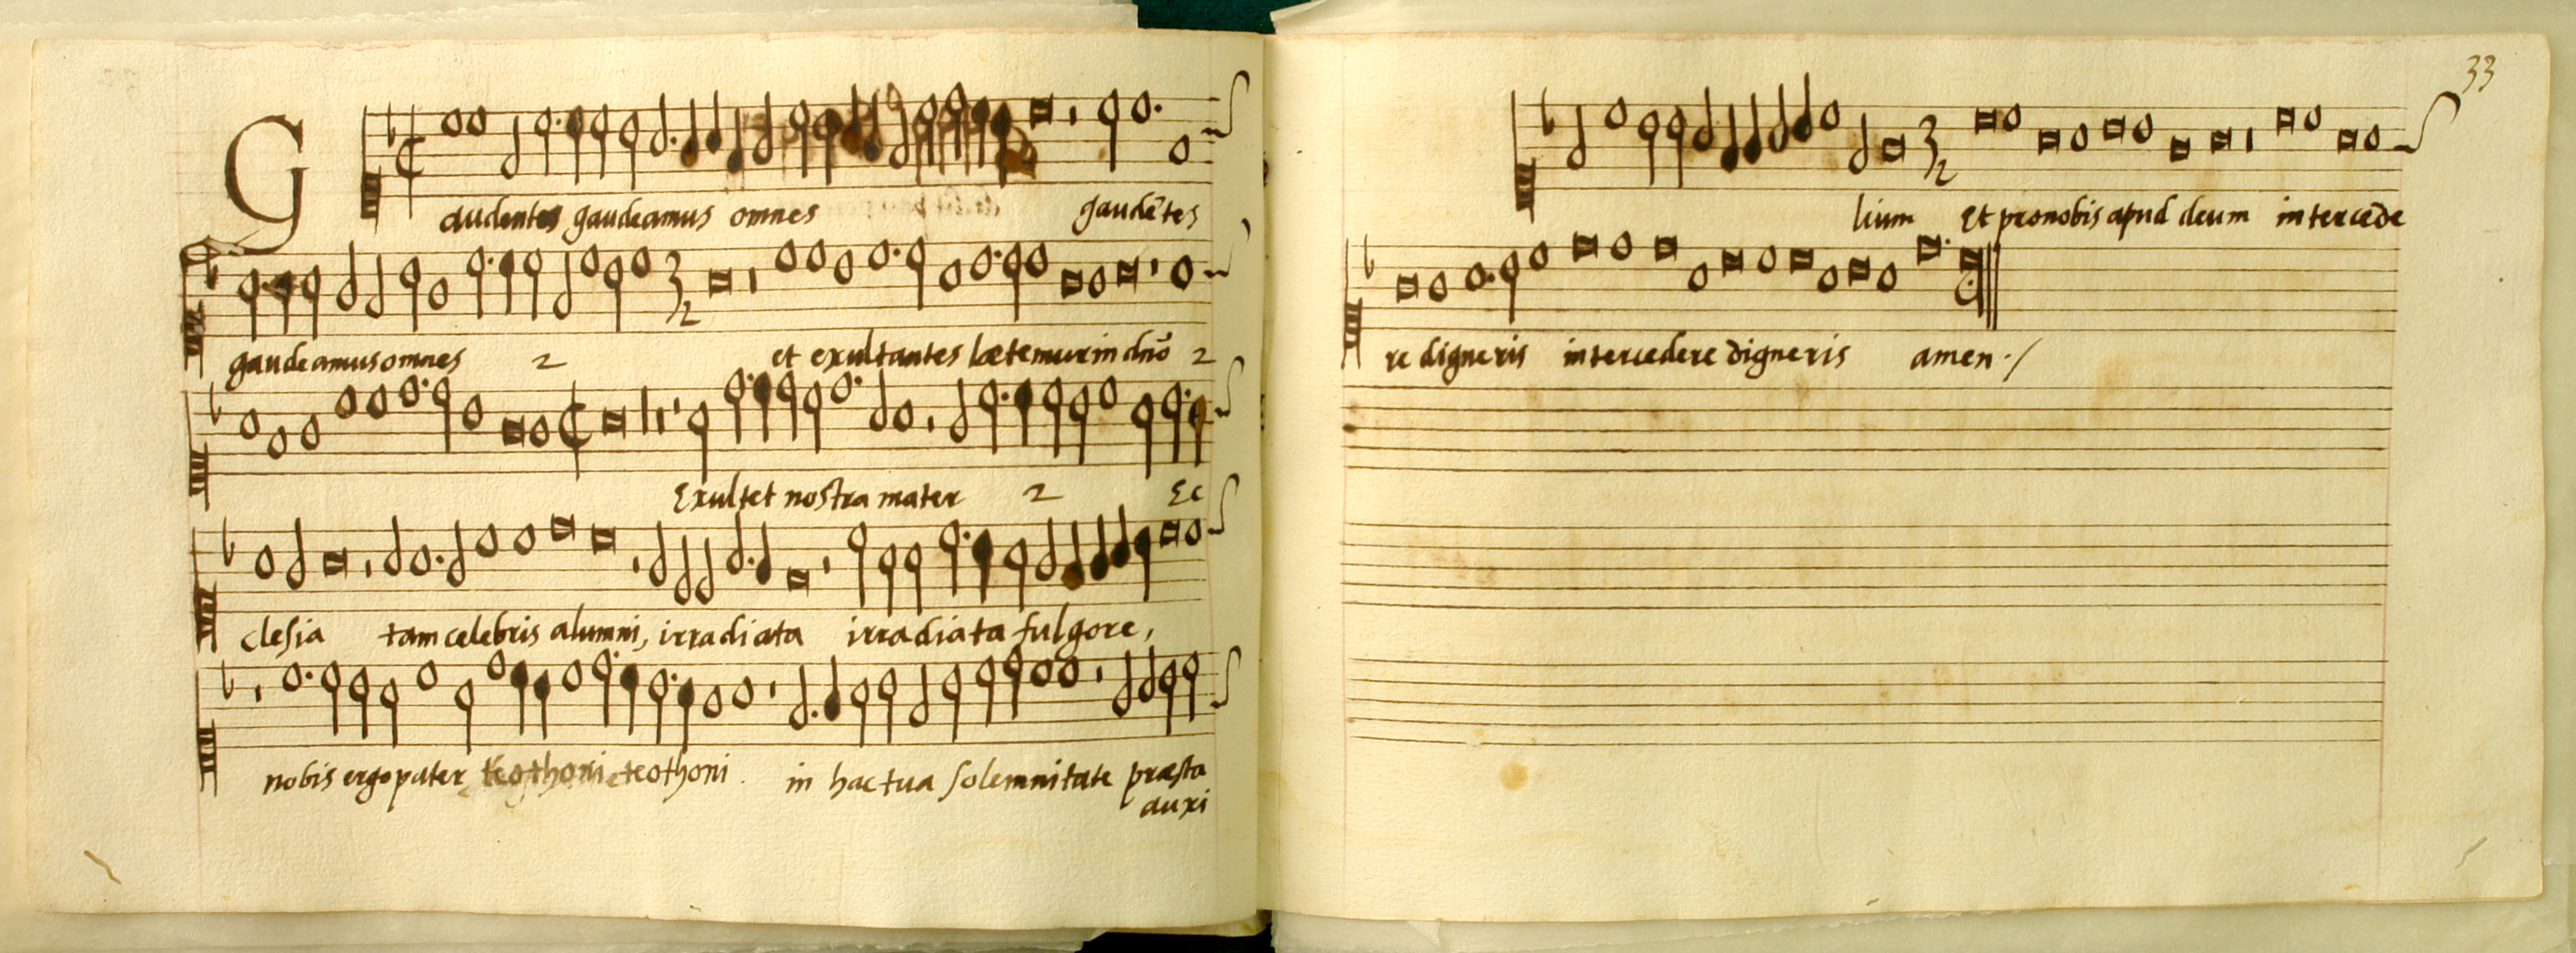 Gaudentes gaudeamus omnes gaudētes
gaudeamus omnes 2 et exultantes lætemur in dnō 2
Exultet nostra mater 2 Ec
clesia tam celebris alumni, irradiata irradiata fulgore,
nobis ergo pater teothoni teothoni . in hac tua solemnitate præsta
auxi
33
lium Et pro nobis apud deum intercede
re digneris intercedere digneris amen ./